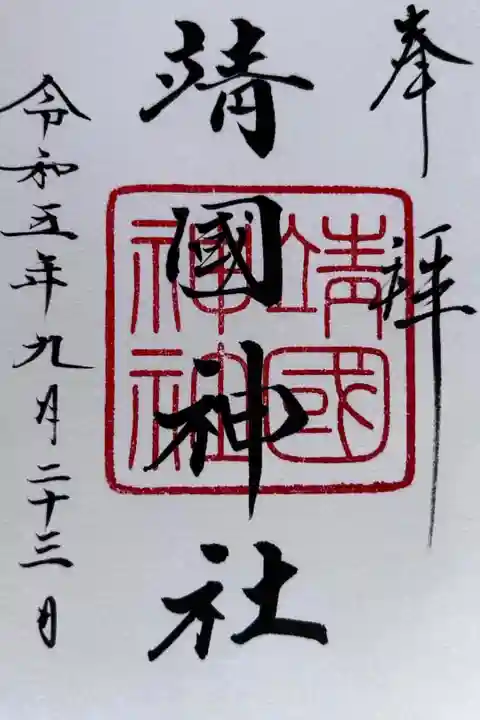 奉拝
靖國神社
靖国神社
令和五年九月二十三日